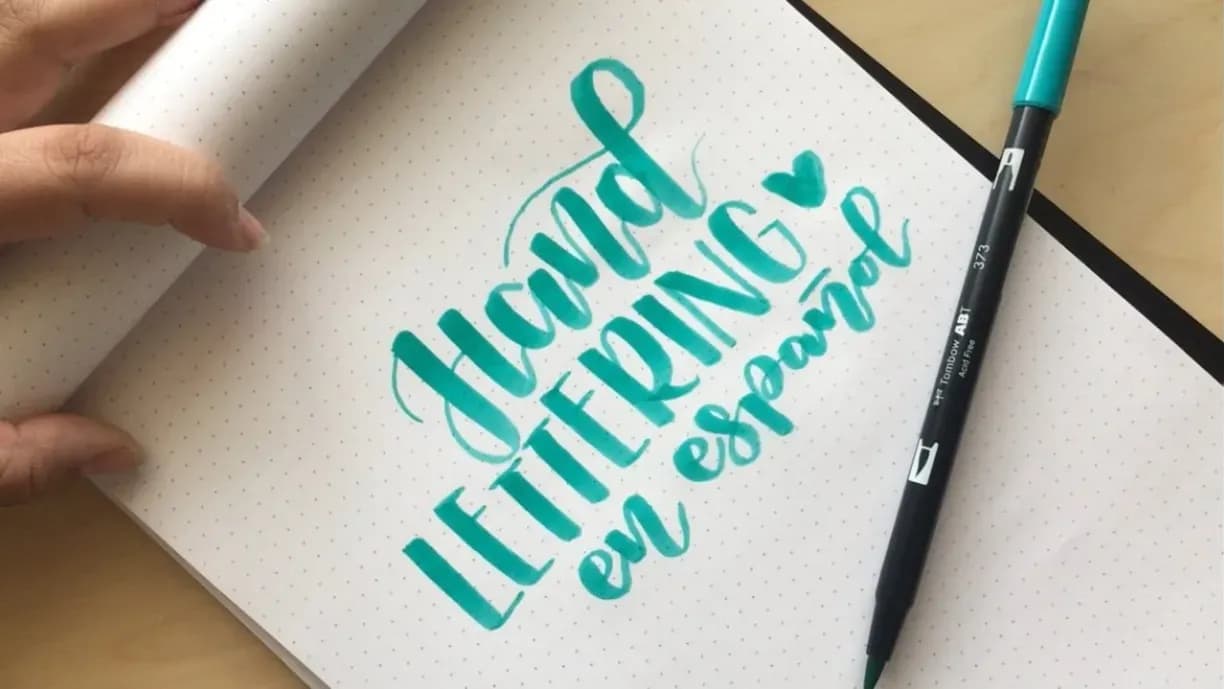 Hand
LETTERING
en español
373
Tombow ABT
Acid Free